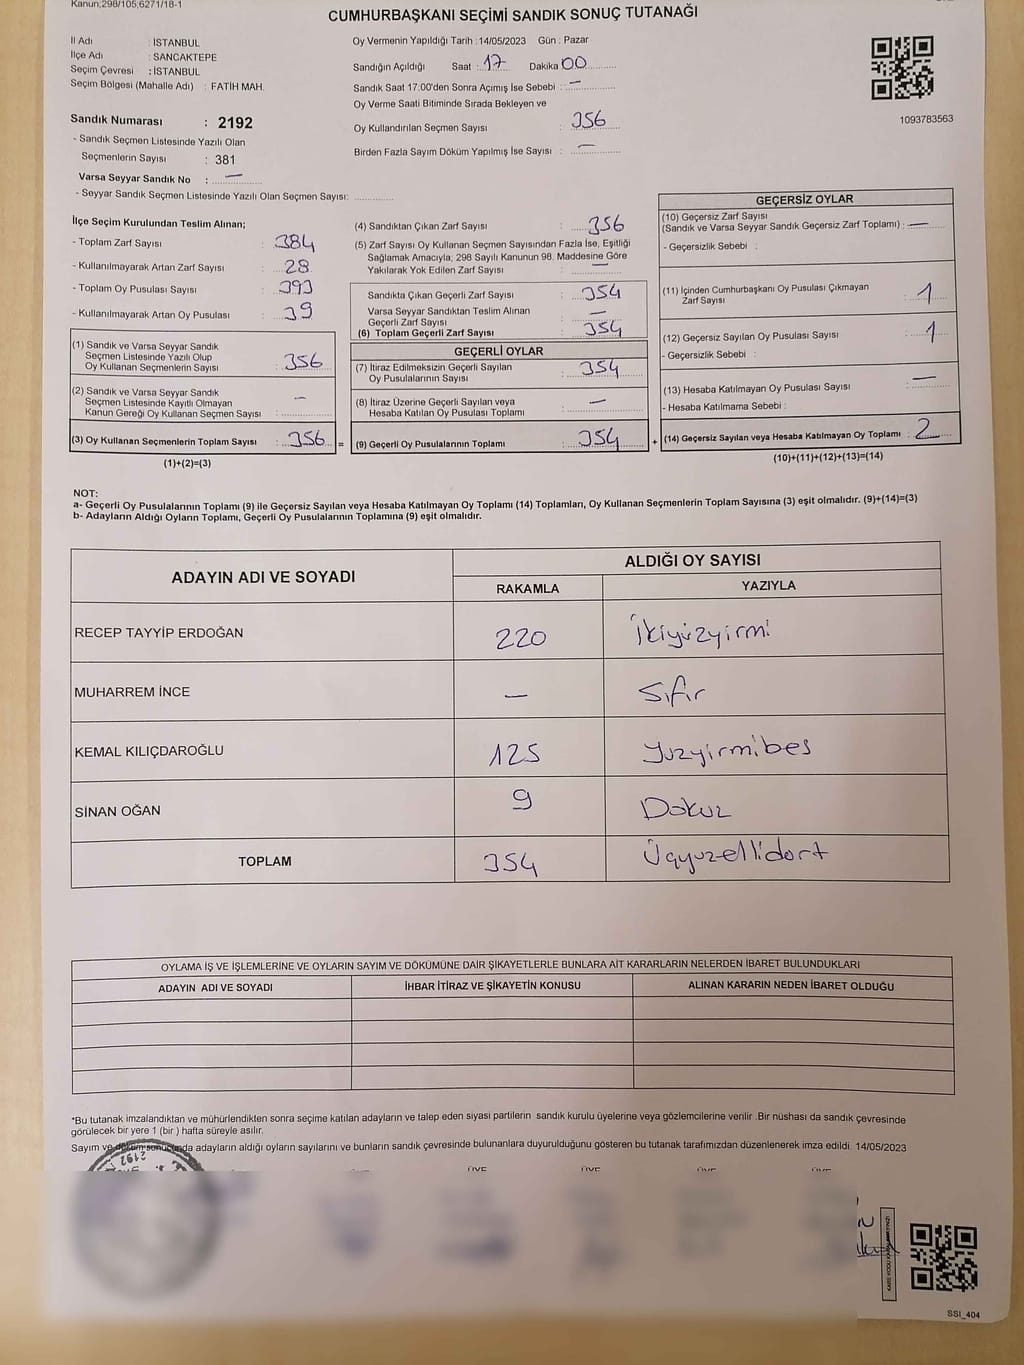 Kanun;298/105;6271/18-1
CUMHURBAŞKANI SEÇİMİ SANDIK SONUÇ TUTANAĞI
İl Adı : İSTANBUL
İlçe Adı : SANCAKTEPE
Seçim Çevresi : İSTANBUL
Seçim Bölgesi (Mahalle Adı) : FATİH MAH.
Sandık Numarası : 2192
- Sandık Seçmen Listesinde Yazılı Olan
Seçmenlerin Sayısı : 381
Varsa Seyyar Sandık No : —
- Seyyar Sandık Seçmen Listesinde Yazılı Olan Seçmen Sayısı:
Oy Vermenin Yapıldığı Tarih :14/05/2023 Gün : Pazar
Sandığın Açıldığı Saat : 17 Dakika 00
Sandık Saat 17:00'den Sonra Açımış İse Sebebi : —
Oy Verme Saati Bitiminde Sırada Bekleyen ve
Oy Kullandırılan Seçmen Sayısı : 356
Birden Fazla Sayım Döküm Yapılmış İse Sayısı : —
1093783563
İlçe Seçim Kurulundan Teslim Alınan;
- Toplam Zarf Sayısı : 384
- Kullanılmayarak Artan Zarf Sayısı : 28
- Toplam Oy Pusulası Sayısı : 393
- Kullanılmayarak Artan Oy Pusulası : 39
(1) Sandık ve Varsa Seyyar Sandık
Seçmen Listesinde Yazılı Olup
Oy Kullanan Seçmenlerin Sayısı : 356
(2) Sandık ve Varsa Seyyar Sandık
Seçmen Listesinde Kayıtlı Olmayan
Kanun Gereği Oy Kullanan Seçmen Sayısı : —
(3) Oy Kullanan Seçmenlerin Toplam Sayısı : 356 =
(1)+(2)=(3)
(4) Sandıktan Çıkan Zarf Sayısı : 356
(5) Zarf Sayısı Oy Kullanan Seçmen Sayısından Fazla İse, Eşitliği
Sağlamak Amacıyla, 298 Sayılı Kanunun 98. Maddesine Göre
Yakılarak Yok Edilen Zarf Sayısı : —
Sandıkta Çıkan Geçerli Zarf Sayısı : 354
Varsa Seyyar Sandıktan Teslim Alınan
Geçerli Zarf Sayısı : —
(6) Toplam Geçerli Zarf Sayısı : 354
GEÇERLİ OYLAR
(7) İtiraz Edilmeksizin Geçerli Sayılan
Oy Pusulalarının Sayısı : 354
(8) İtiraz Üzerine Geçerli Sayılan veya
Hesaba Katılan Oy Pusulası Toplamı : —
(9) Geçerli Oy Pusulalarının Toplamı : 354 +
GEÇERSİZ OYLAR
(10) Geçersiz Zarf Sayısı
(Sandık ve Varsa Seyyar Sandık Geçersiz Zarf Toplamı) : —
- Geçersizlik Sebebi :
(11) İçinden Cumhurbaşkanı Oy Pusulası Çıkmayan
Zarf Sayısı : 1
(12) Geçersiz Sayılan Oy Pusulası Sayısı : 1
- Geçersizlik Sebebi :
(13) Hesaba Katılmayan Oy Pusulası Sayısı : —
- Hesaba Katılmama Sebebi :
(14) Geçersiz Sayılan veya Hesaba Katılmayan Oy Toplamı : 2
(10)+(11)+(12)+(13)=(14)
NOT:
a- Geçerli Oy Pusulalarının Toplamı (9) ile Geçersiz Sayılan veya Hesaba Katılmayan Oy Toplamı (14) Toplamları, Oy Kullanan Seçmenlerin Toplam Sayısına (3) eşit olmalıdır. (9)+(14)=(3)
b- Adayların Aldığı Oyların Toplamı, Geçerli Oy Pusulalarının Toplamına (9) eşit olmalıdır.
ADAYIN ADI VE SOYADI ALDIĞI OY SAYISI
RAKAMLA YAZIYLA
RECEP TAYYİP ERDOĞAN 220 İkiyüzyirmi
MUHARREM İNCE — Sıfır
KEMAL KILIÇDAROĞLU 125 Yuzyirmibes
SİNAN OĞAN 9 Dokuz
TOPLAM 354 Üçyuzellidort
OYLAMA İŞ VE İŞLEMLERİNE VE OYLARIN SAYIM VE DÖKÜMÜNE DAİR ŞİKAYETLERLE BUNLARA AİT KARARLARIN NELERDEN İBARET BULUNDUKLARI
ADAYIN ADI VE SOYADI İHBAR İTİRAZ VE ŞİKAYETİN KONUSU ALINAN KARARIN NEDEN İBARET OLDUĞU
*Bu tutanak imzalandıktan ve mühürlendikten sonra seçime katılan adayların ve talep eden siyasi partilerin sandık kurulu üyelerine veya gözlemcilerine verilir .Bir nüshası da sandık çevresinde
görülecek bir yere 1 (bir ) hafta süreyle asılır.
Sayım ve döküm sonucunda adayların aldığı oyların sayılarını ve bunların sandık çevresinde bulunanlara duyurulduğunu gösteren bu tutanak tarafımızdan düzenlenerek imza edildi. 14/05/2023
2192
ÜYE ÜYE ÜYE ÜYE
SSI_404